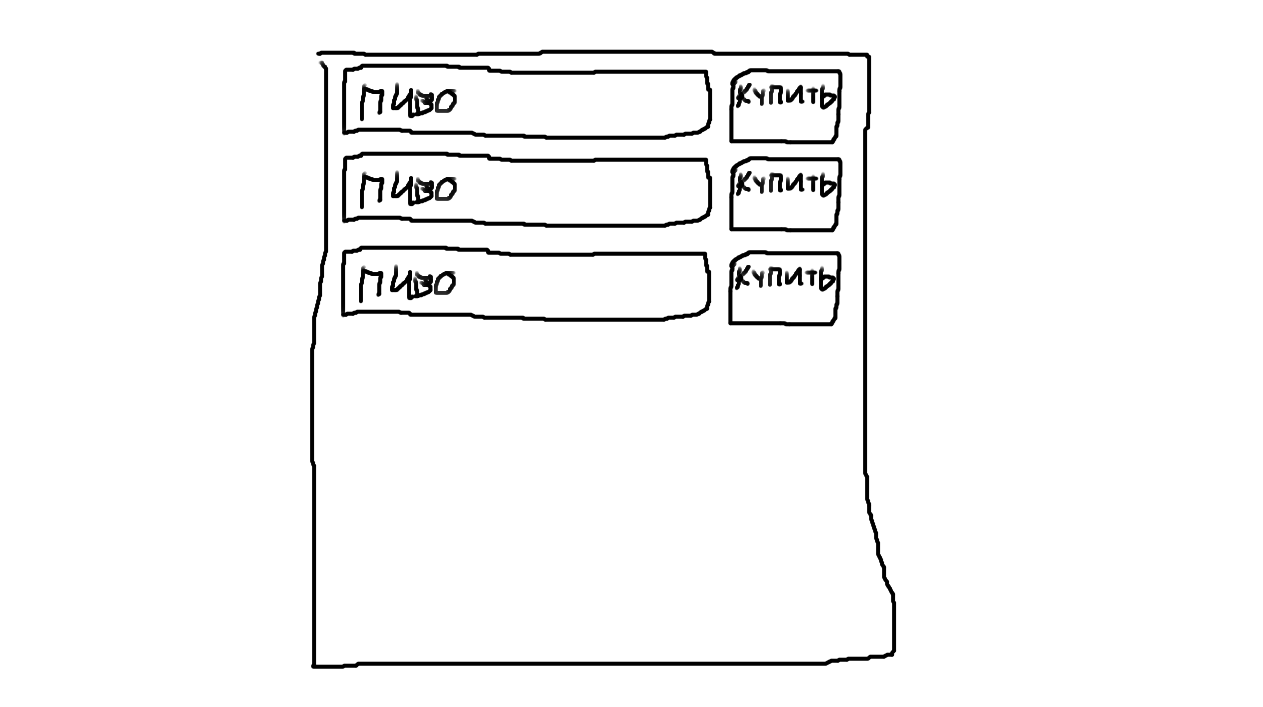 ПИВО КУПИТЬ
ПИВО КУПИТЬ
ПИВО КУПИТЬ